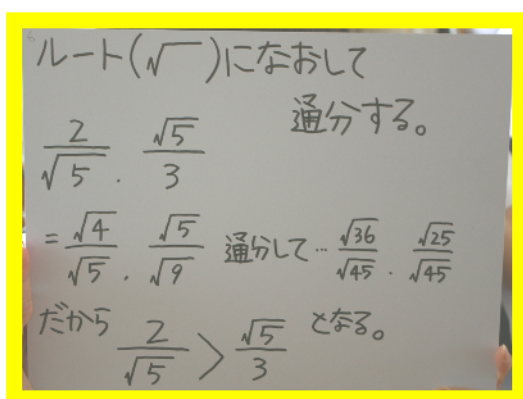 ルート(√ )になおして
通分する。
2/√5 . √5/3
= √4/√5 . √5/√9 通分して… √36/√45 . √25/√45
だから 2/√5 > √5/3 となる。